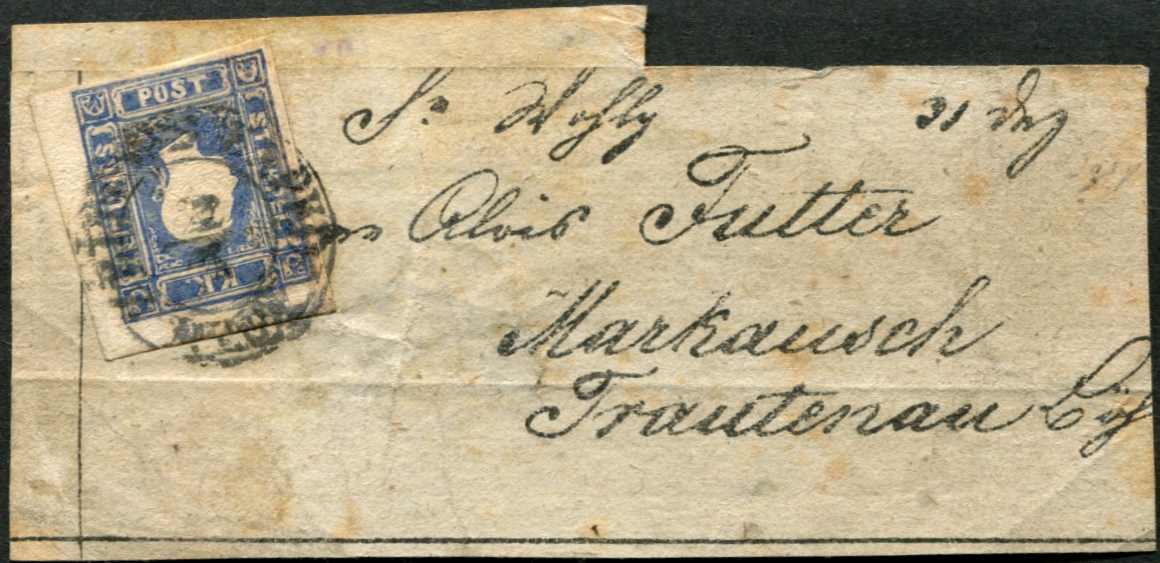 POST
ZEITUNGS
K.K.
Sr. Wohlg 31 Dez
Alois Futter
Markausch
Trautenau Böh